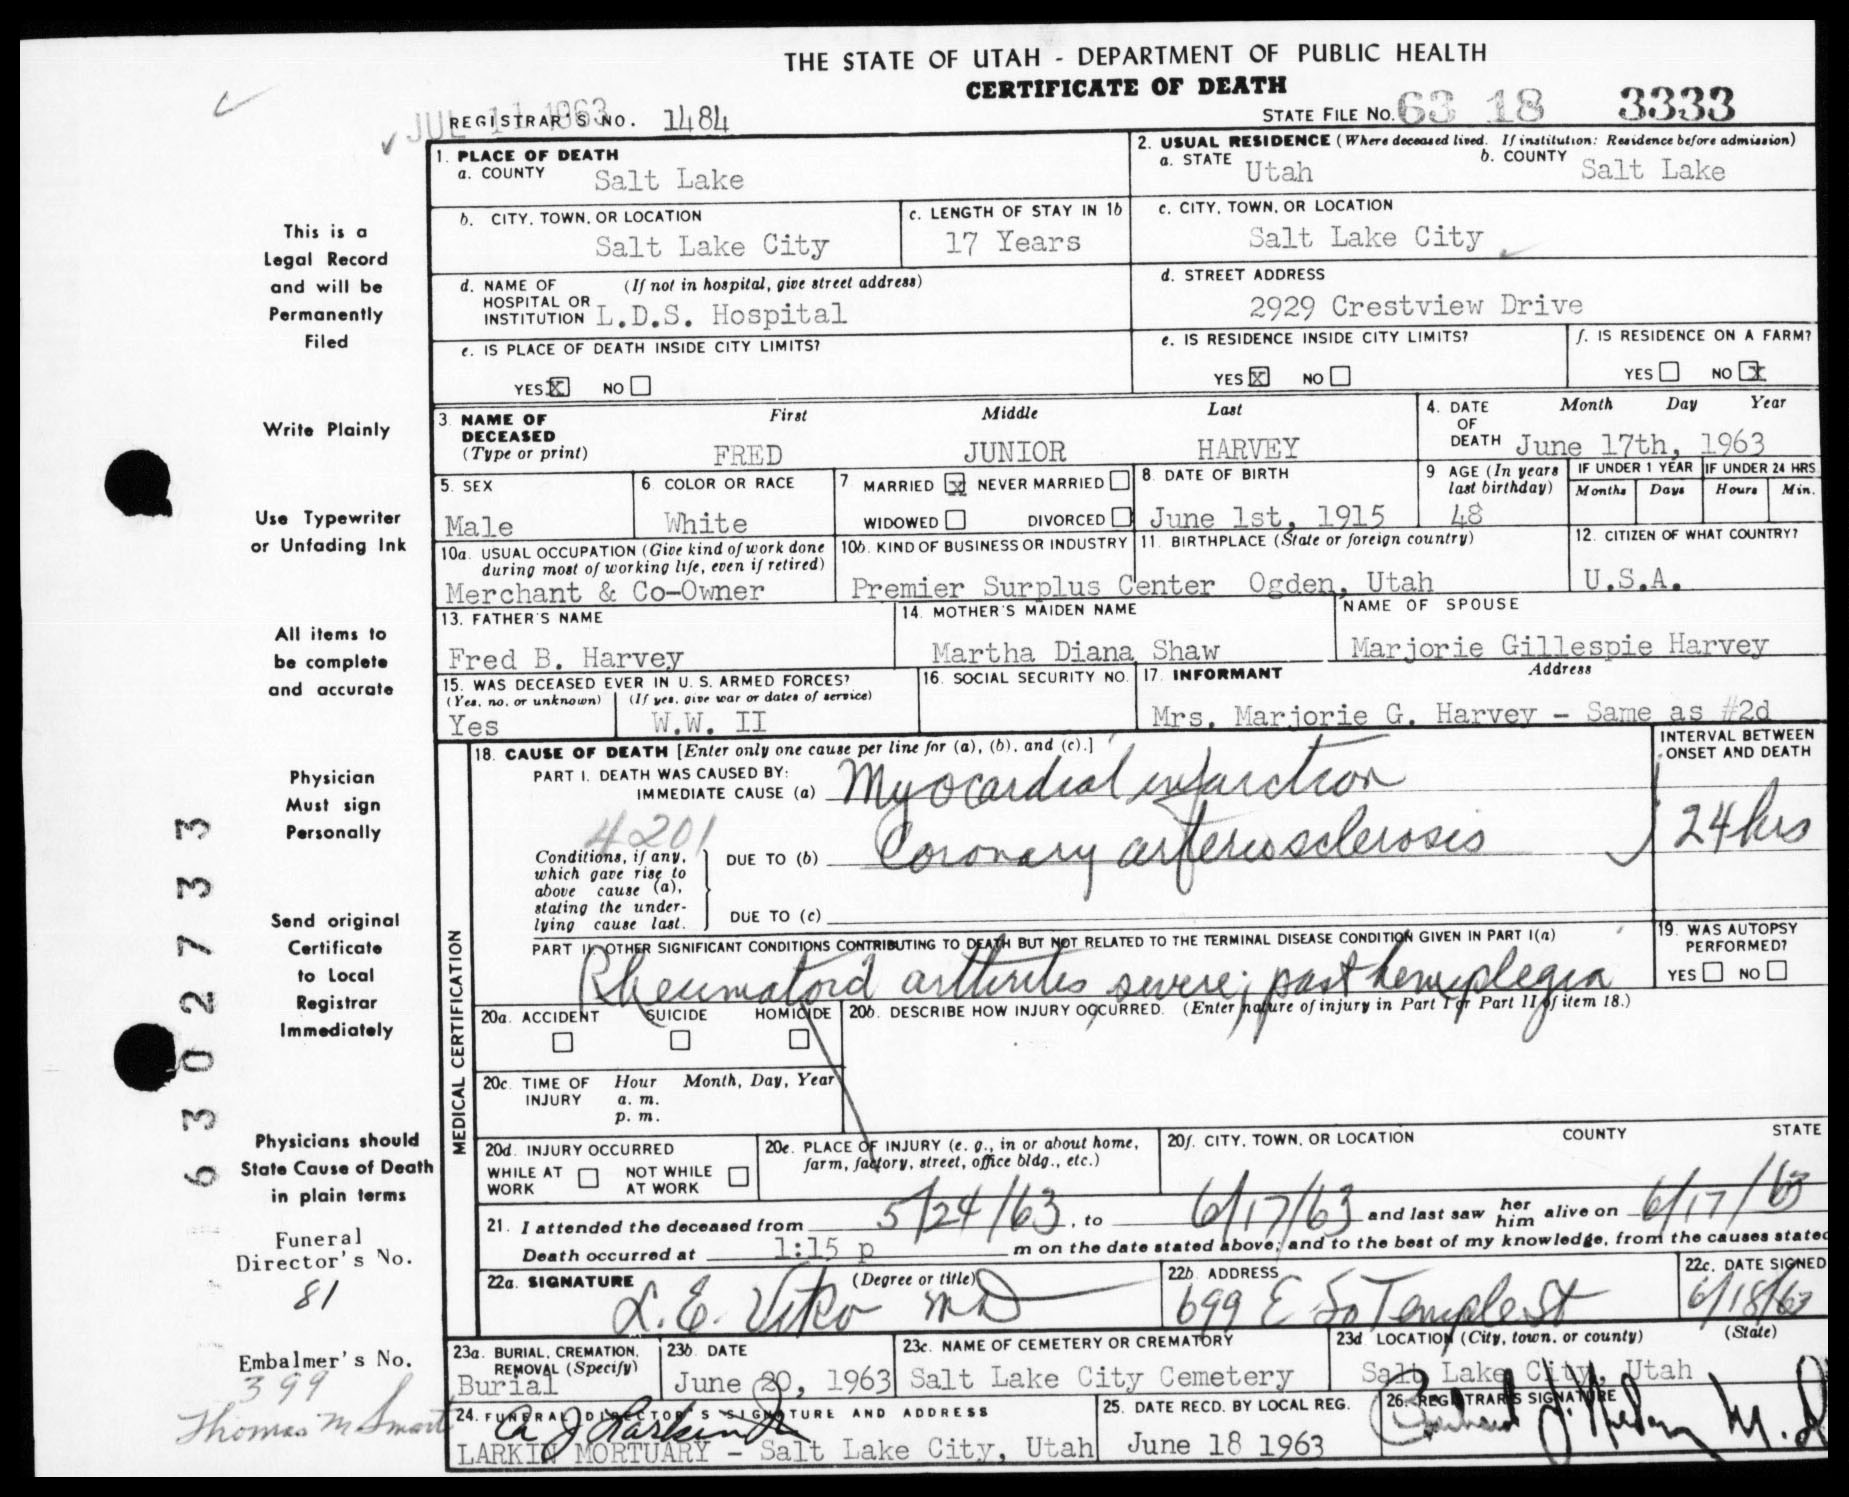 THE STATE OF UTAH - DEPARTMENT OF PUBLIC HEALTH
CERTIFICATE OF DEATH
JUL 11 1963
REGISTRAR'S NO. 1484
STATE FILE NO. 63 18 3333
1. PLACE OF DEATH
a. COUNTY Salt Lake
2. USUAL RESIDENCE (Where deceased lived. If institution: Residence before admission)
a. STATE Utah b. COUNTY Salt Lake
b. CITY, TOWN, OR LOCATION Salt Lake City
c. LENGTH OF STAY IN 1b 17 Years
c. CITY, TOWN, OR LOCATION Salt Lake City
d. NAME OF HOSPITAL OR INSTITUTION (If not in hospital, give street address) L.D.S. Hospital
d. STREET ADDRESS 2929 Crestview Drive
e. IS PLACE OF DEATH INSIDE CITY LIMITS?
YES X NO
e. IS RESIDENCE INSIDE CITY LIMITS?
YES X NO
f. IS RESIDENCE ON A FARM?
YES NO X
3. NAME OF DECEASED (Type or print) First Middle Last
FRED JUNIOR HARVEY
4. DATE OF DEATH Month Day Year
June 17th, 1963
5. SEX Male
6. COLOR OR RACE White
7 MARRIED X NEVER MARRIED
WIDOWED DIVORCED
8. DATE OF BIRTH June 1st, 1915
9 AGE (In years last birthday) 48
IF UNDER 1 YEAR Months Days
IF UNDER 24 HRS Hours Min.
10a. USUAL OCCUPATION (Give kind of work done during most of working life, even if retired)
Merchant & Co-Owner
10b. KIND OF BUSINESS OR INDUSTRY
Premier Surplus Center
11. BIRTHPLACE (State or foreign country)
Ogden, Utah
12. CITIZEN OF WHAT COUNTRY?
U.S.A.
13. FATHER'S NAME
Fred B. Harvey
14. MOTHER'S MAIDEN NAME
Martha Diana Shaw
NAME OF SPOUSE
Marjorie Gillespie Harvey
15. WAS DECEASED EVER IN U. S. ARMED FORCES?
(Yes, no, or unknown) (If yes, give war or dates of service)
Yes W.W. II
16. SOCIAL SECURITY NO.
17. INFORMANT Address
Mrs. Marjorie G. Harvey - Same as #2d
MEDICAL CERTIFICATION
18. CAUSE OF DEATH [Enter only one cause per line for (a), (b), and (c).]
INTERVAL BETWEEN ONSET AND DEATH
PART I. DEATH WAS CAUSED BY:
IMMEDIATE CAUSE (a) Myocardial infarction
4201
Conditions, if any, which gave rise to above cause (a), stating the underlying cause last.
DUE TO (b) Coronary arteriosclerosis
24 hrs
DUE TO (c)
PART II. OTHER SIGNIFICANT CONDITIONS CONTRIBUTING TO DEATH BUT NOT RELATED TO THE TERMINAL DISEASE CONDITION GIVEN IN PART I(a)
Rheumatoid arthritis severe; past hemiplegia
19. WAS AUTOPSY PERFORMED?
YES NO
20a. ACCIDENT SUICIDE HOMICIDE
20b. DESCRIBE HOW INJURY OCCURRED. (Enter nature of injury in Part I or Part II of item 18.)
20c. TIME OF INJURY Hour Month, Day, Year
a. m.
p. m.
20d. INJURY OCCURRED
WHILE AT WORK NOT WHILE AT WORK
20e. PLACE OF INJURY (e. g., in or about home, farm, factory, street, office bldg., etc.)
20f. CITY, TOWN, OR LOCATION COUNTY STATE
21. I attended the deceased from 5/24/63, to 6/17/63 and last saw her him alive on 6/17/63
Death occurred at 1:15 p m on the date stated above; and to the best of my knowledge, from the causes stated
22a. SIGNATURE (Degree or title)
L. E. Viko MD
22b. ADDRESS
699 E So Temple St
22c. DATE SIGNED
6/18/63
23a. BURIAL, CREMATION, REMOVAL (Specify)
Burial
23b. DATE
June 20, 1963
23c. NAME OF CEMETERY OR CREMATORY
Salt Lake City Cemetery
23d LOCATION (City, town, or county) (State)
Salt Lake City, Utah
24. FUNERAL DIRECTOR'S SIGNATURE AND ADDRESS
LARKIN MORTUARY - Salt Lake City, Utah
25. DATE RECD. BY LOCAL REG.
June 18 1963
26. REGISTRAR'S SIGNATURE
This is a
Legal Record
and will be
Permanently
Filed
Write Plainly
Use Typewriter
or Unfading Ink
All items to
be complete
and accurate
Physician
Must sign
Personally
Send original
Certificate
to Local
Registrar
Immediately
Physicians should
State Cause of Death
in plain terms
Funeral
Director's No.
81
Embalmer's No.
399
Thomas M Smart
6302733